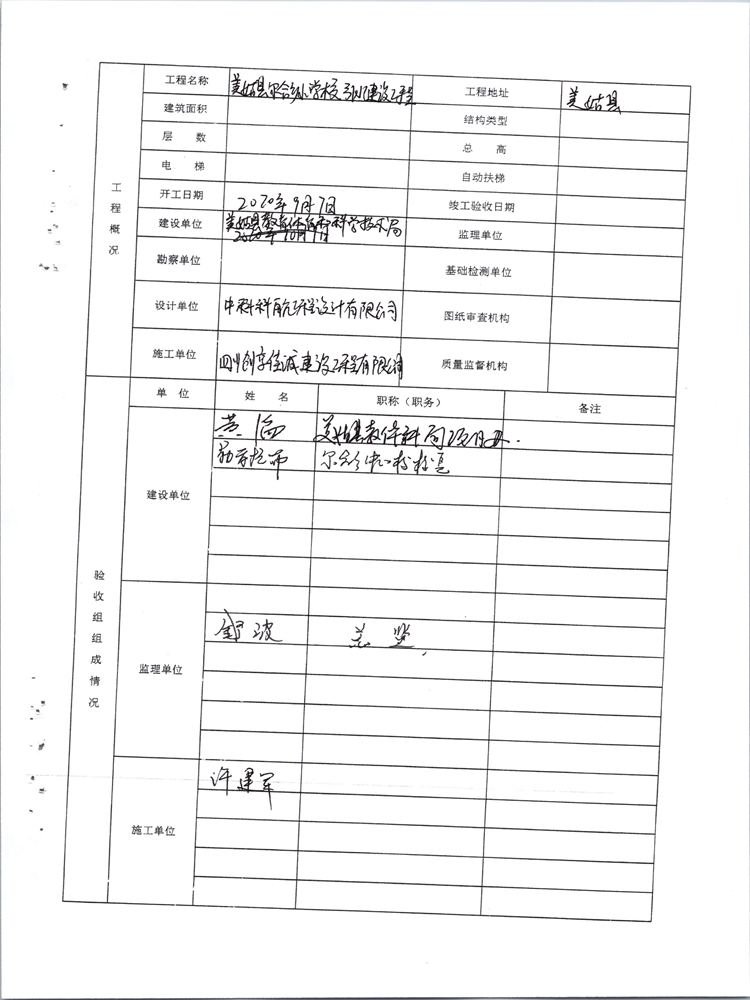 工程名称 美姑县尔合乡小学校 建设工程 工程地址 美姑县
建筑面积 结构类型
层 数 总 高
电 梯 自动扶梯
工程概况
开工日期 2020年9月7日 竣工验收日期
建设单位 美姑县教育体育和科学技术局 监理单位
勘察单位 基础检测单位
设计单位 中科科航工程设计有限公司 图纸审查机构
施工单位 四川创享佳诚建设工程有限公司 质量监督机构
单 位 姓 名 职称（职务） 备注
美姑县教体科局项目办.
建设单位
验收组组成情况
舒波 总监
监理单位
许建军
施工单位